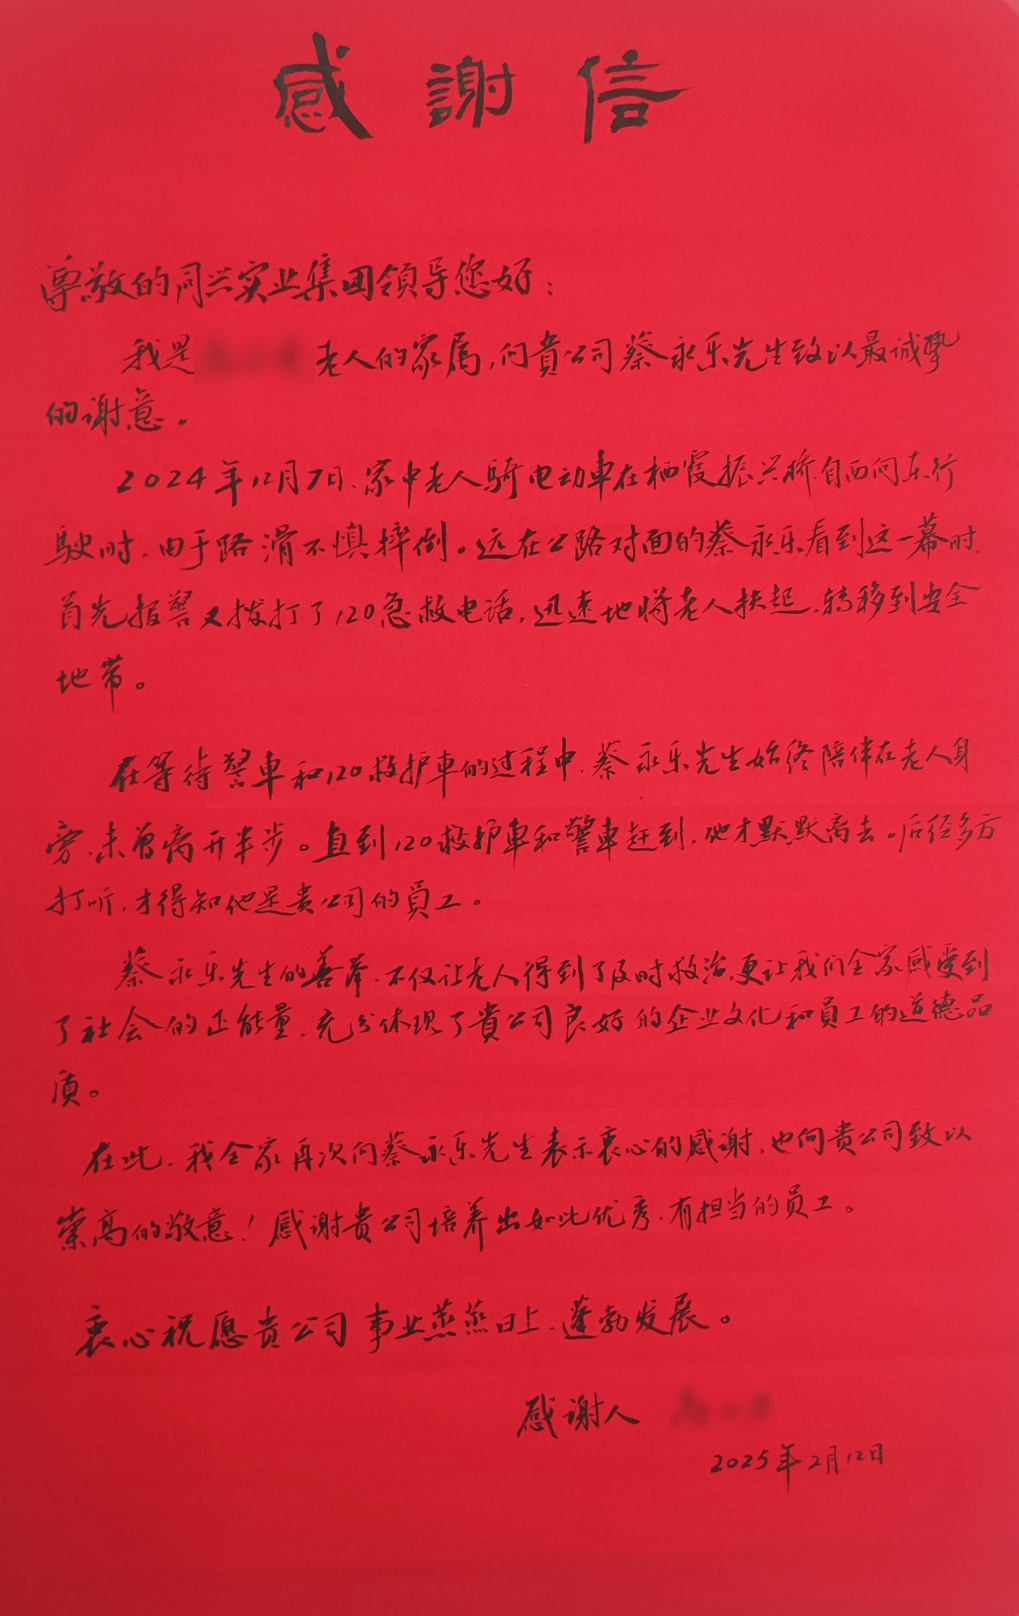 感謝信
尊敬的同兴实业集团領导您好：
我是 老人的家属,向貴公司蔡永乐先生致以最诚挚
的谢意。
2024年12月7日、家中老人騎电动車在栖霞振兴桥自西向东行
駛时，由于路滑不慎摔倒。远在公路对面的蔡永乐看到这一幕时，
首先报警又拨打了120急救电话,迅速地将老人扶起、转移到安全
地带。
在等待警車和120救护車的过程中,蔡永乐先生始终陪伴在老人身
旁、未曾离开半步。直到120救护車和警車赶到，他才默默离去。后经多方
打听,才得知他是贵公司的員工。
蔡永乐先生的善举、不仅让老人得到了及时救治,更让我们全家感受到
了社会的正能量、充分体现了貴公司良好的企业文化和員工的道德品
质。
在此、我全家再次向蔡永乐先生表示衷心的感谢、也向贵公司致以
崇高的敬意！感谢貴公司培养出如此优秀、有担当的员工。
衷心祝愿贵公司事业蒸蒸日上、蓬勃发展。
感谢人
2025年2月12日